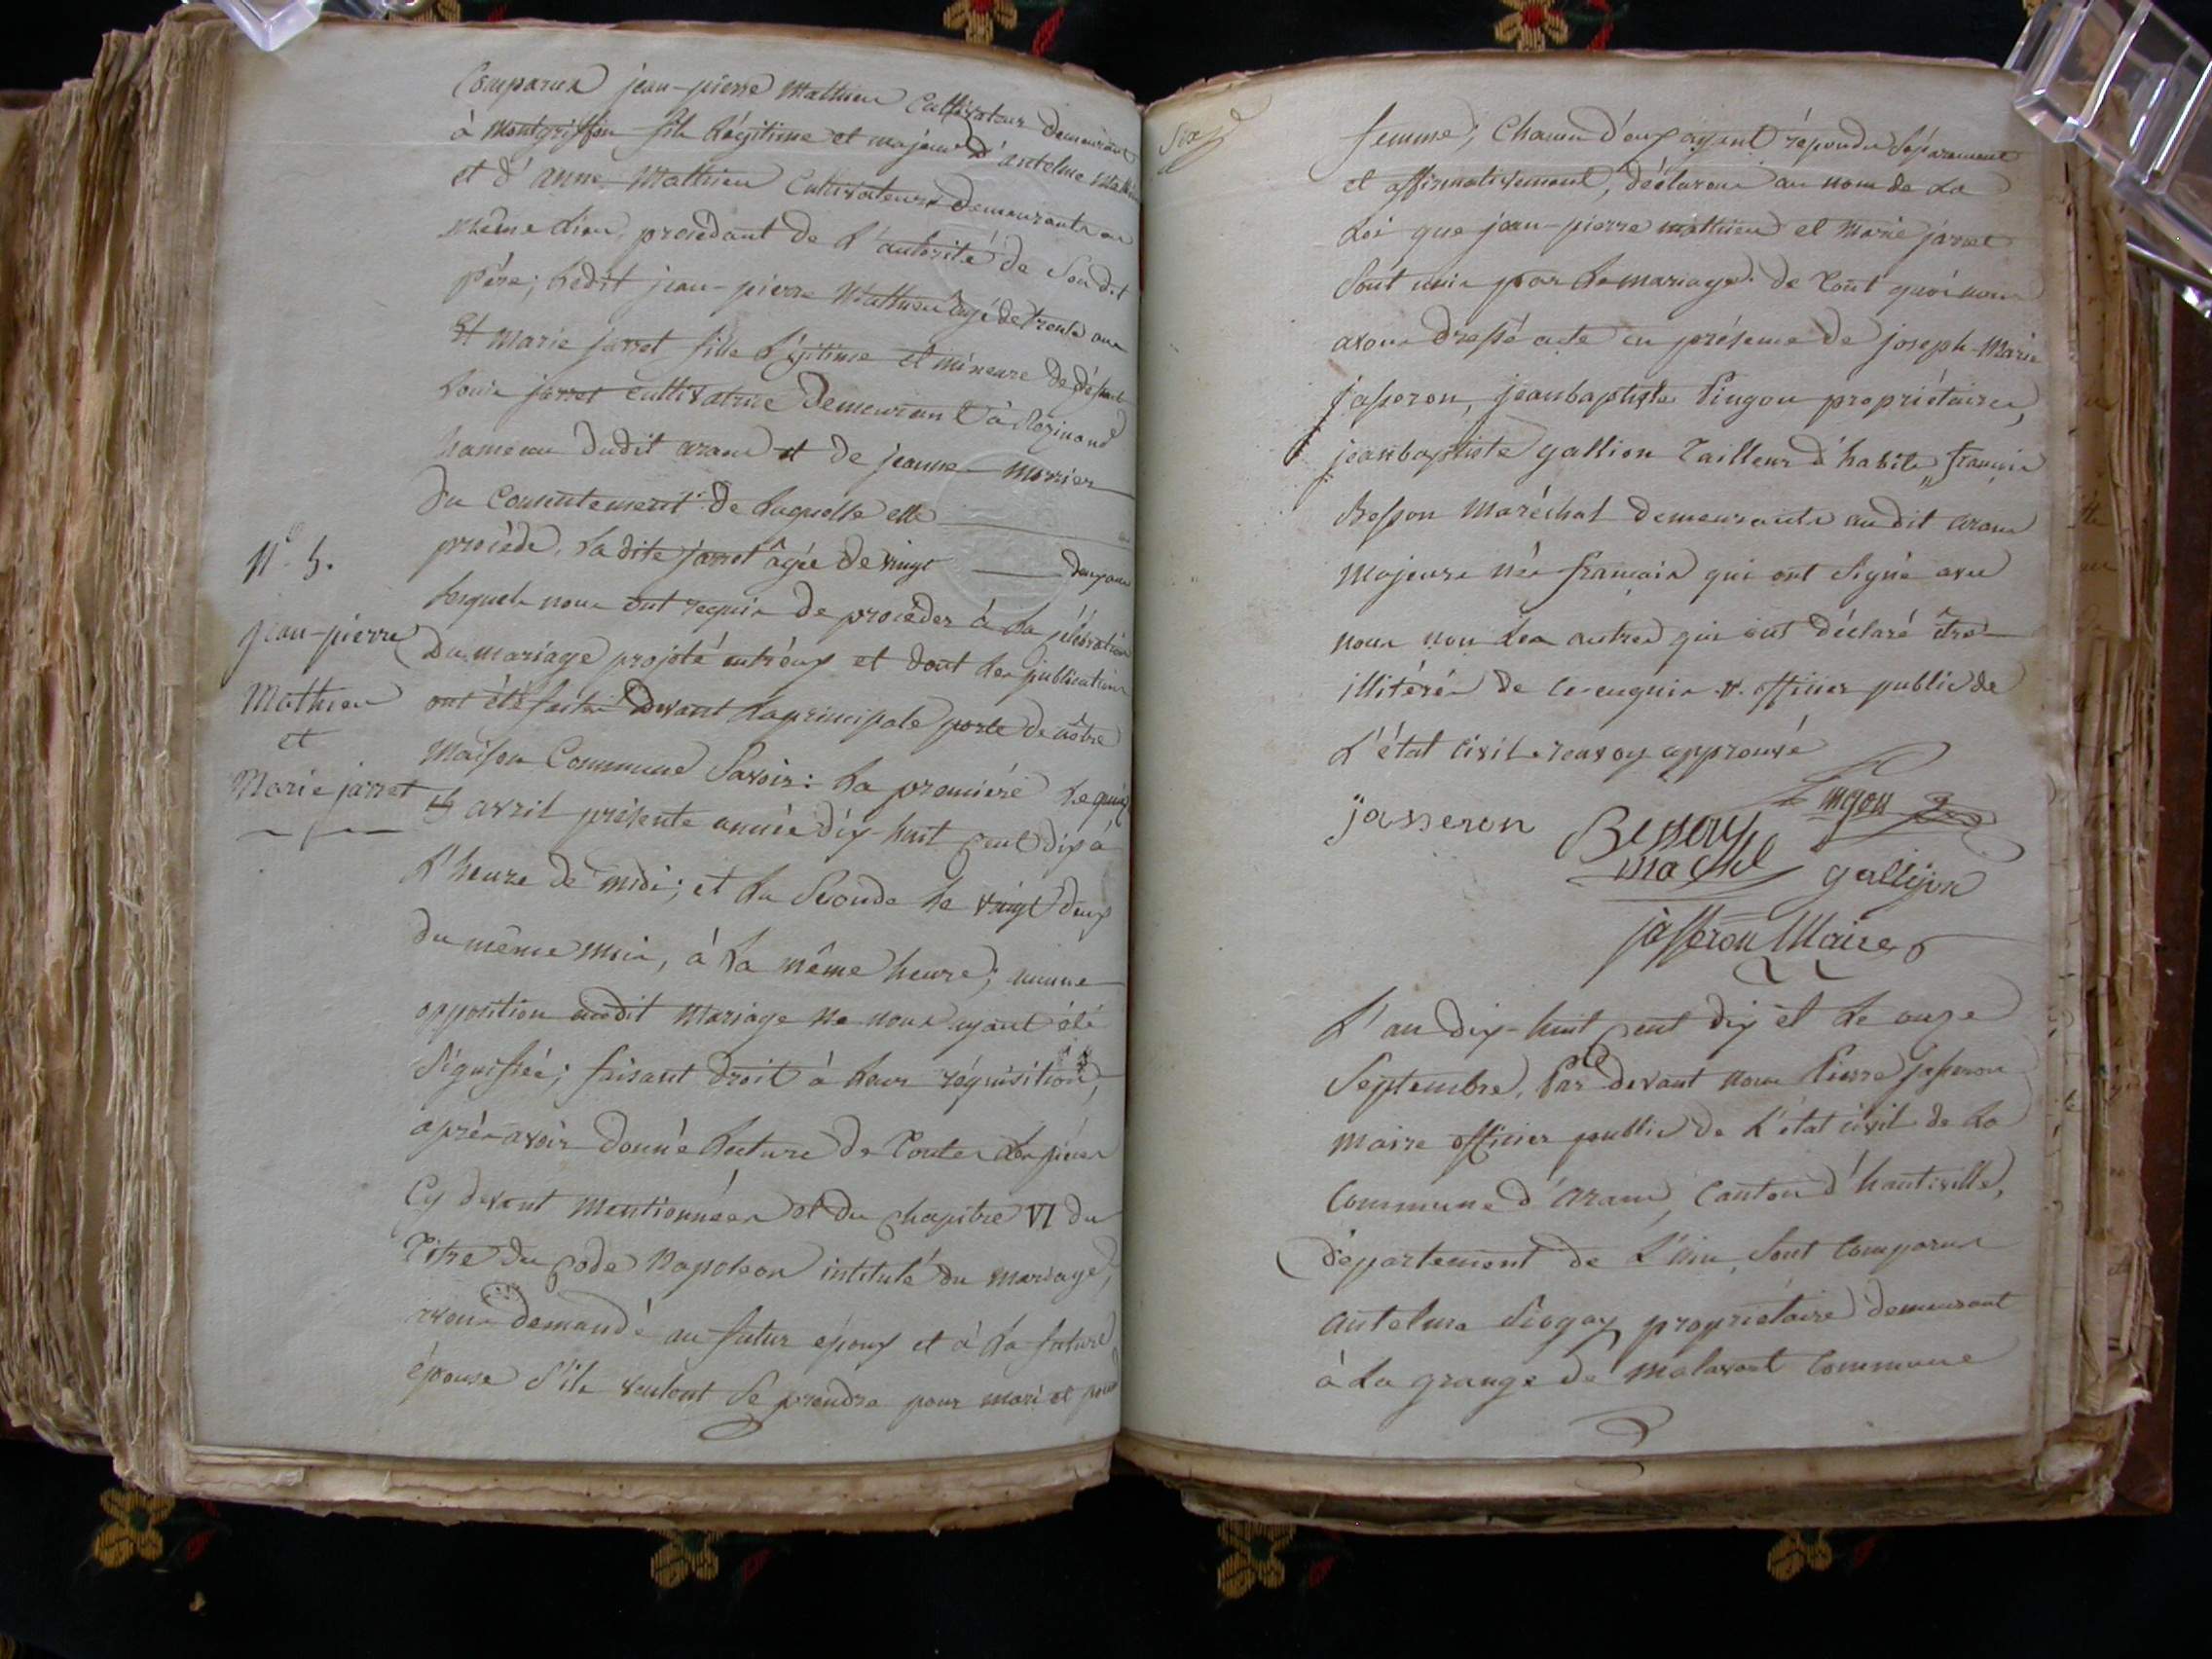 Comparus jean-pierre Mathieu Cultivateur demeurant
à montgriffon fils légitime et majeur d'antelme Mathieu
et d'anne Mathieu Cultivateurs demeurants au
même lieu, procédant de l'autorité de Son dit
père; ledit jean-pierre Mathieu âgé de trente ans
Et Marie jarret fille légitime et mineure de défunt
Louis jarret cultivatrice demeurant à
hameau dudit aranc et de jeanne Monnier
du Consentement de laquelle elle
procède, la dite jarret âgée de vingt deux ans
lesquels nous ont requis de procéder à la célébration
du mariage projeté entr'eux et dont les publications
ont été faites devant la principale porte de nôtre
Maison Commune Savoir: la première le quinze
avril présente année dix-huit cent dix à
l'heure de midi; et la Seconde le vingt deux
du même mois, à la même heure; aucune
opposition audit Mariage ne nous ayant été
Signifiée; faisant droit à leur réquisition,
après avoir donné lecture de toutes les pièces
Cy devant Mentionnées et du chapitre VI du
titre du Code Napoléon intitulé du Mariage,
avons demandé au futur époux et à la future
épouse S'ils veulent Se prendre pour mari et pour
N.° 5.
jean-pierre
Mathieu
et
Marie jarret
Six
femme; Chacun d'eux ayant répondu Séparément
et affirmativement, déclarons au nom de la
Loi que jean-pierre mathieu et Marie jarret
Sont unis par le mariage. de tout quoi nous
avons dressé acte en présence de joseph-Marie
jasseron, jeanbaptiste Pingon propriétaires,
jeanbaptiste gallion Tailleur d'habits, françois
Besson Maréchal demeurants audit aranc
Majeurs nés français qui ont Signé avec
nous non les autres qui ont déclaré être
illitérés de ce enquis. officier public de
L'état civil renvoy approuvé
jasseron
Pingon
Besson
machl
galliion
jasseron Maire
L'an dix-huit cent dix et le onze
Septembre, Par devant nous Pierre jasseron
Maire officier public de L'état civil de la
Commune d'aranc, Canton d'hauteville,
département de L'ain, Sont Comparus
antelme propriétaire demeurant
à La grange de malavert Commune